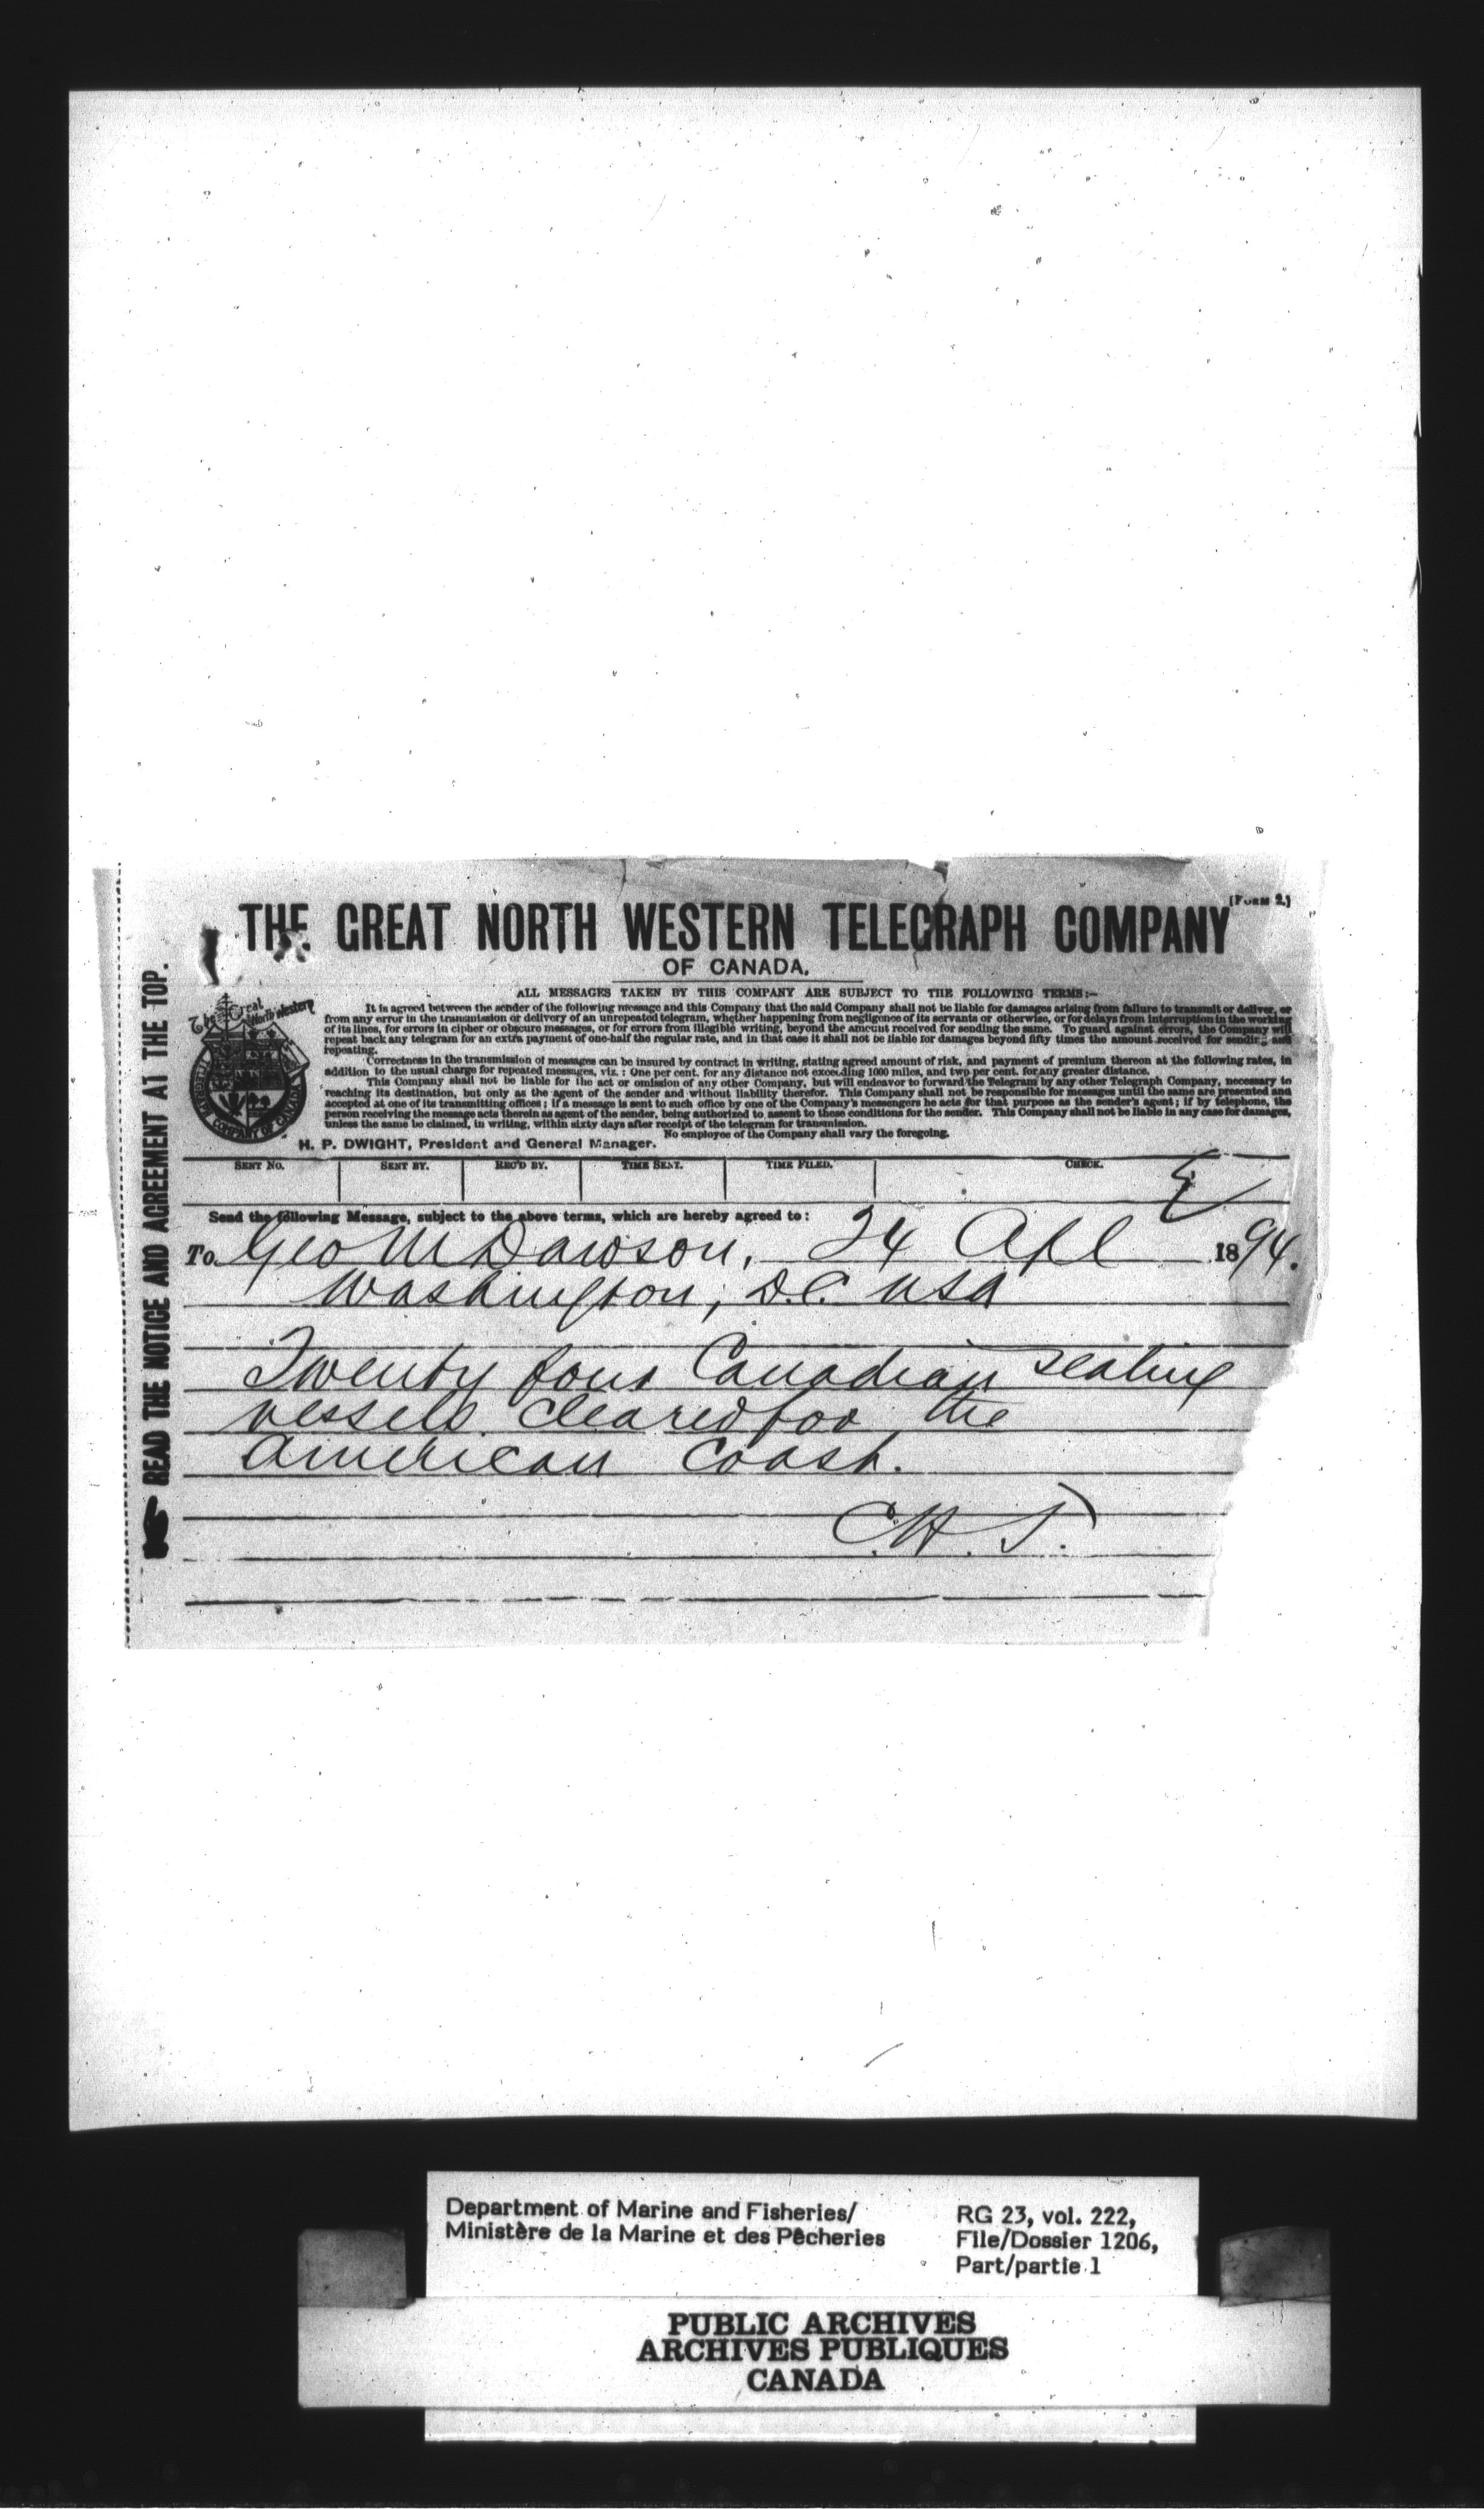 [FORM 2.]
THE GREAT NORTH WESTERN TELEGRAPH COMPANY
OF CANADA.
READ THE NOTICE AND AGREEMENT AT THE TOP.
The Great North Western
TELEGRAPH
COMPANY OF CANADA
ALL MESSAGES TAKEN BY THIS COMPANY ARE SUBJECT TO THE FOLLOWING TERMS:—
It is agreed between the sender of the following message and this Company that the said Company shall not be liable for damages arising from failure to transmit or deliver, or
from any error in the transmission or delivery of an unrepeated telegram, whether happening from negligence of its servants or otherwise, or for delays from interruption in the working
of its lines, for errors in cipher or obscure messages, or for errors from illegible writing, beyond the amount received for sending the same. To guard against errors, the Company will
repeat back any telegram for an extra payment of one-half the regular rate, and in that case it shall not be liable for damages beyond fifty times the amount received for sending and
repeating.
Correctness in the transmission of messages can be insured by contract in writing, stating agreed amount of risk, and payment of premium thereon at the following rates, in
addition to the usual charge for repeated messages, viz. : One per cent. for any distance not exceeding 1000 miles, and two per cent. for any greater distance.
This Company shall not be liable for the act or omission of any other Company, but will endeavor to forward the Telegram by any other Telegraph Company, necessary to
reaching its destination, but only as the agent of the sender and without liability therefor. This Company shall not be responsible for messages until the same are presented and
accepted at one of its transmitting offices ; if a message is sent to such office by one of the Company's messengers he acts for that purpose as the sender's agent ; if by telephone, the
person receiving the message acts therein as agent of the sender, being authorized to assent to these conditions for the sender. This Company shall not be liable in any case for damages,
unless the same be claimed, in writing, within sixty days after receipt of the telegram for transmission.
No employee of the Company shall vary the foregoing.
H. P. DWIGHT, President and General Manager.
SENT NO. SENT BY. REC'D BY. TIME SENT. TIME FILED. CHECK.
Send the following Message, subject to the above terms, which are hereby agreed to :
To Geo M Dawson, 24 Apl 1894.
Washington, D.C. USA
Twenty four Canadian sealing
vessels cleared for the
American Coast.
C.H.T.
Department of Marine and Fisheries/
Ministère de la Marine et des Pêcheries
RG 23, vol. 222,
File/Dossier 1206,
Part/partie 1
PUBLIC ARCHIVES
ARCHIVES PUBLIQUES
CANADA